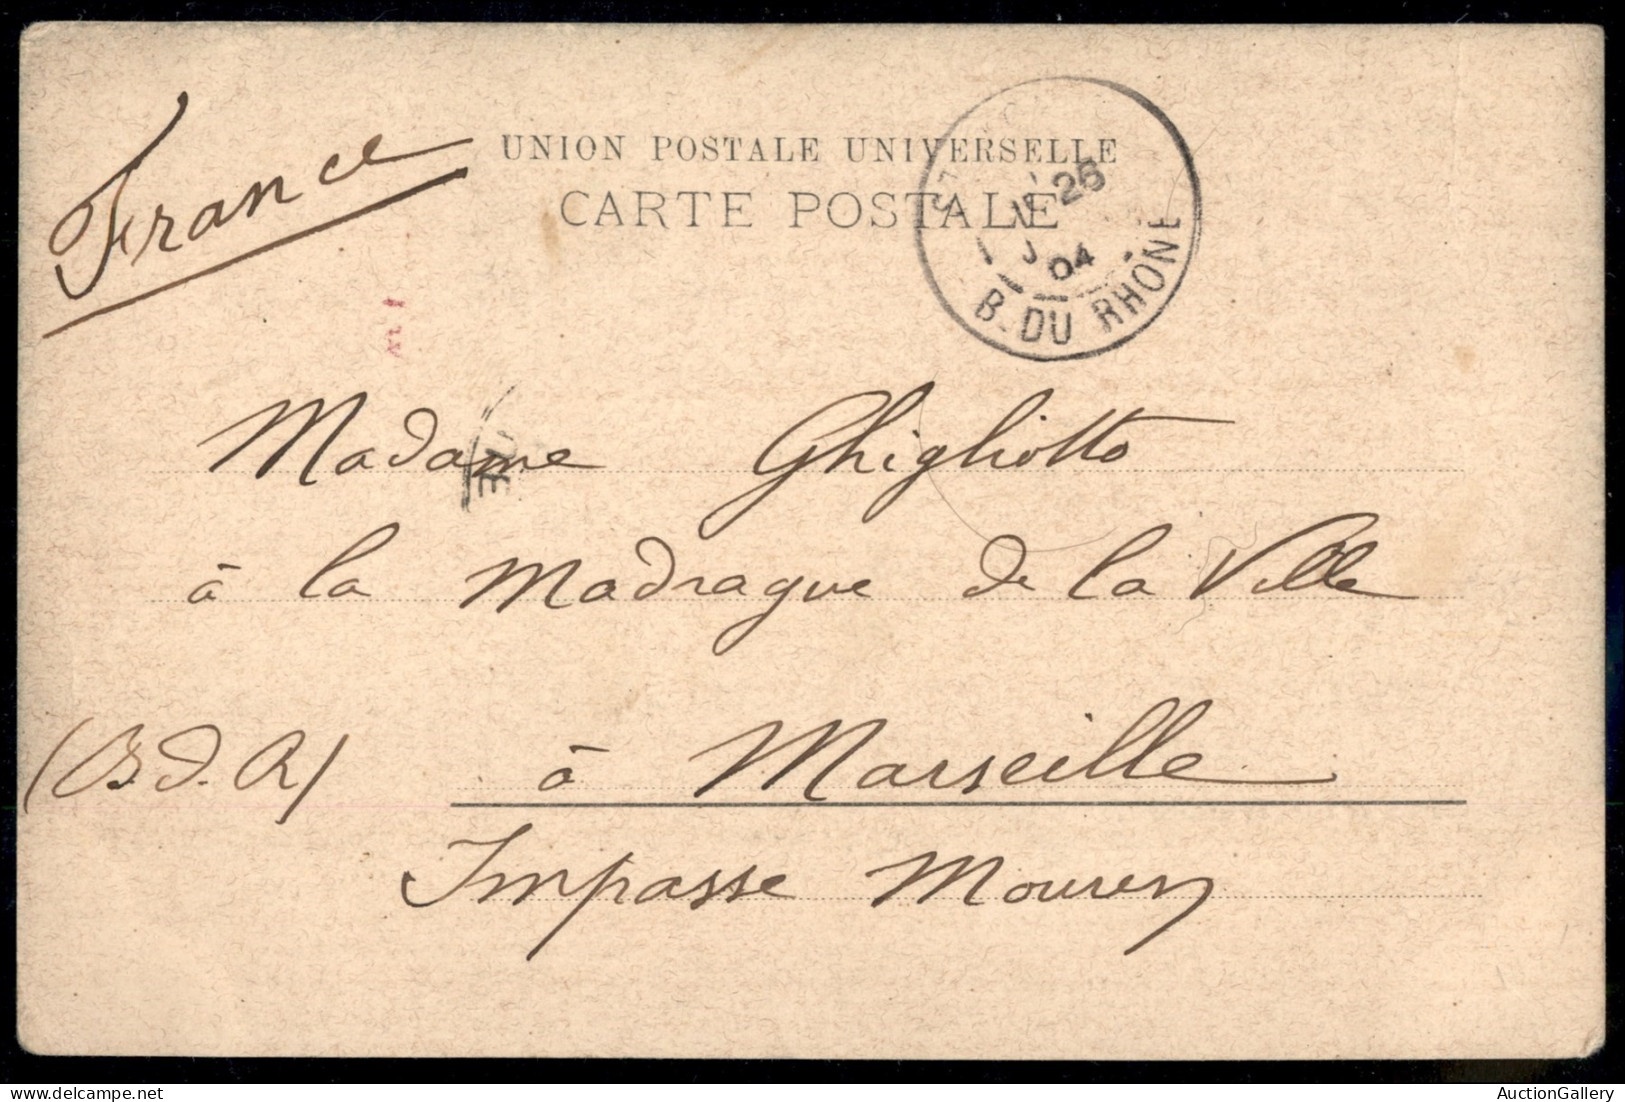 France
UNION POSTALE UNIVERSELLE
CARTE POSTALE
26
04
B. DU RHÔNE
Madame Ghigliotto
à la Madrague de la Ville
(B. d. R)
à Marseille
Impasse Mouren
AuctionGallery